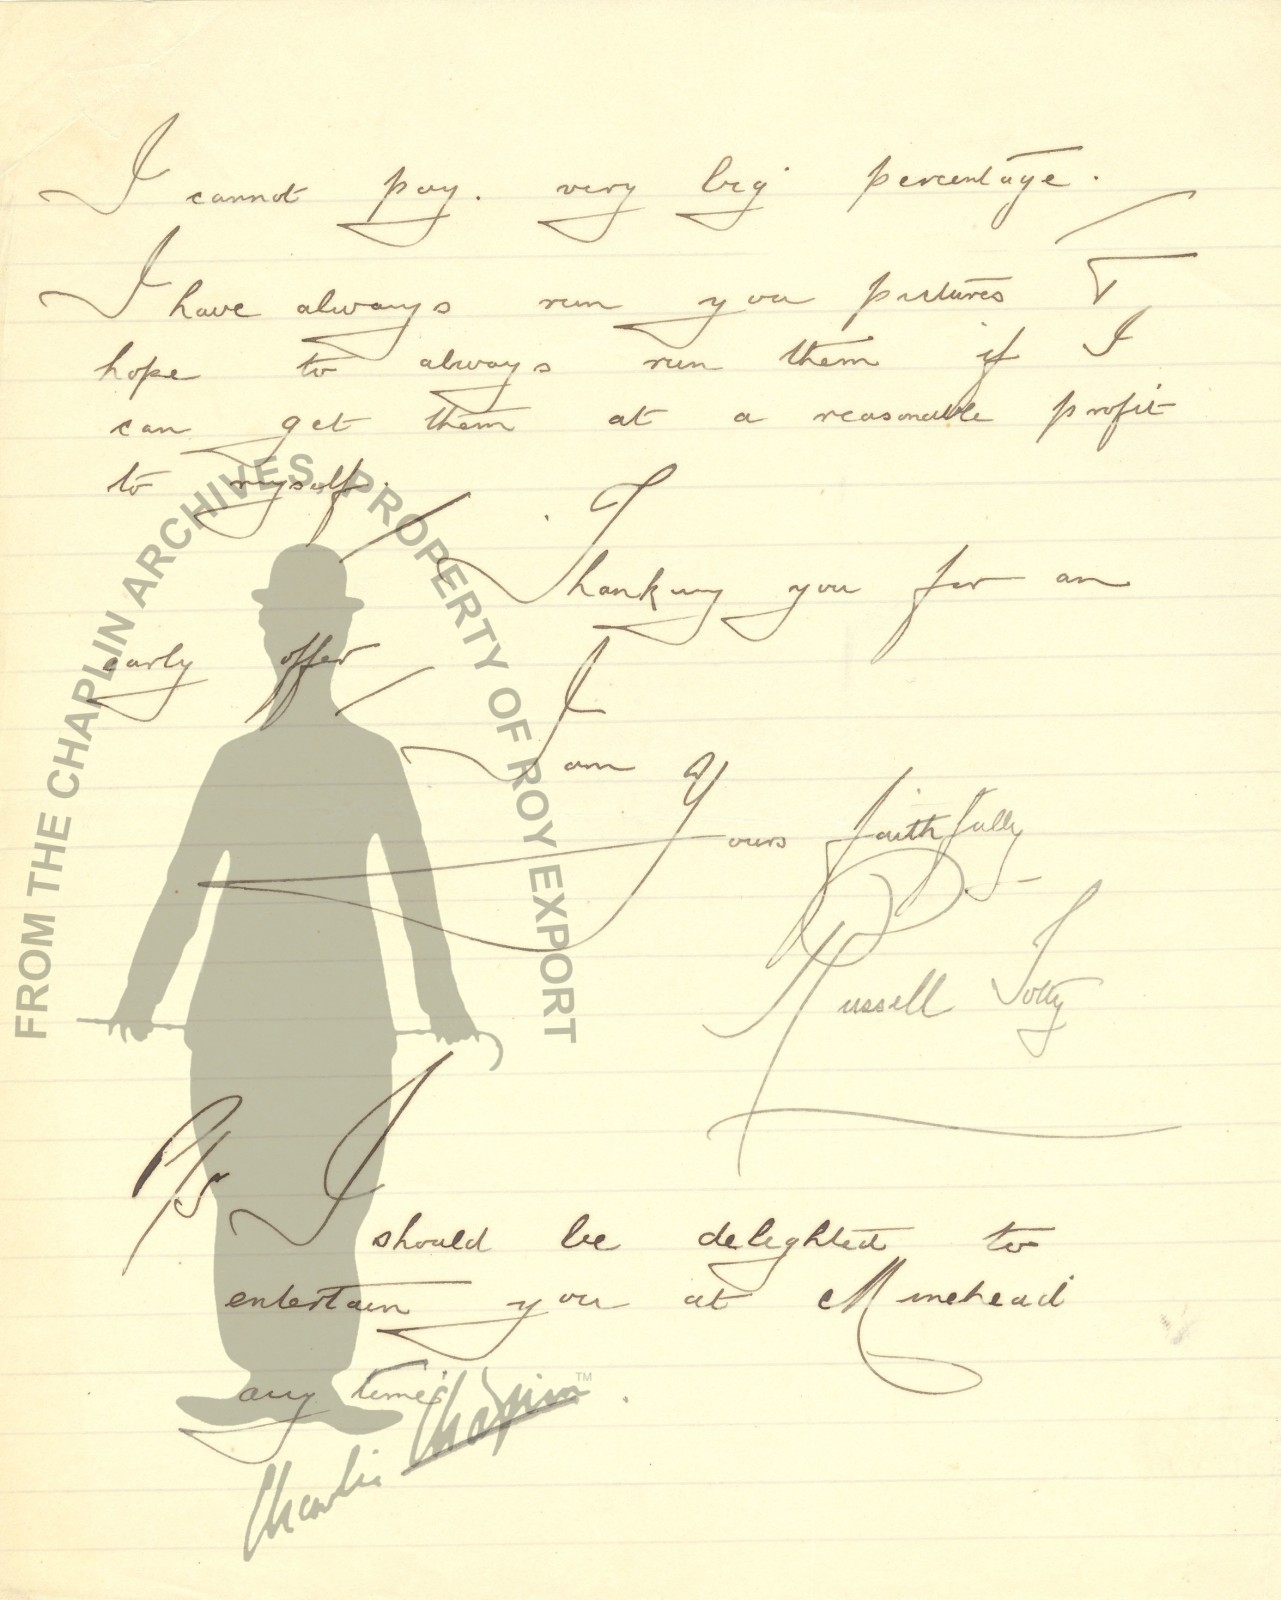 I cannot pay. very big percentage.
I have always run you pictures &
hope to always run them if I
can get them at a reasonable profit
to myself.
Thanking you for an
early offer
I am
Yours faithfully
Russell Totty
P/s I should be delighted to
entertain you at Minehead
any time.
FROM THE CHAPLIN ARCHIVES, PROPERTY OF ROY EXPORT
Charlie Chaplin™